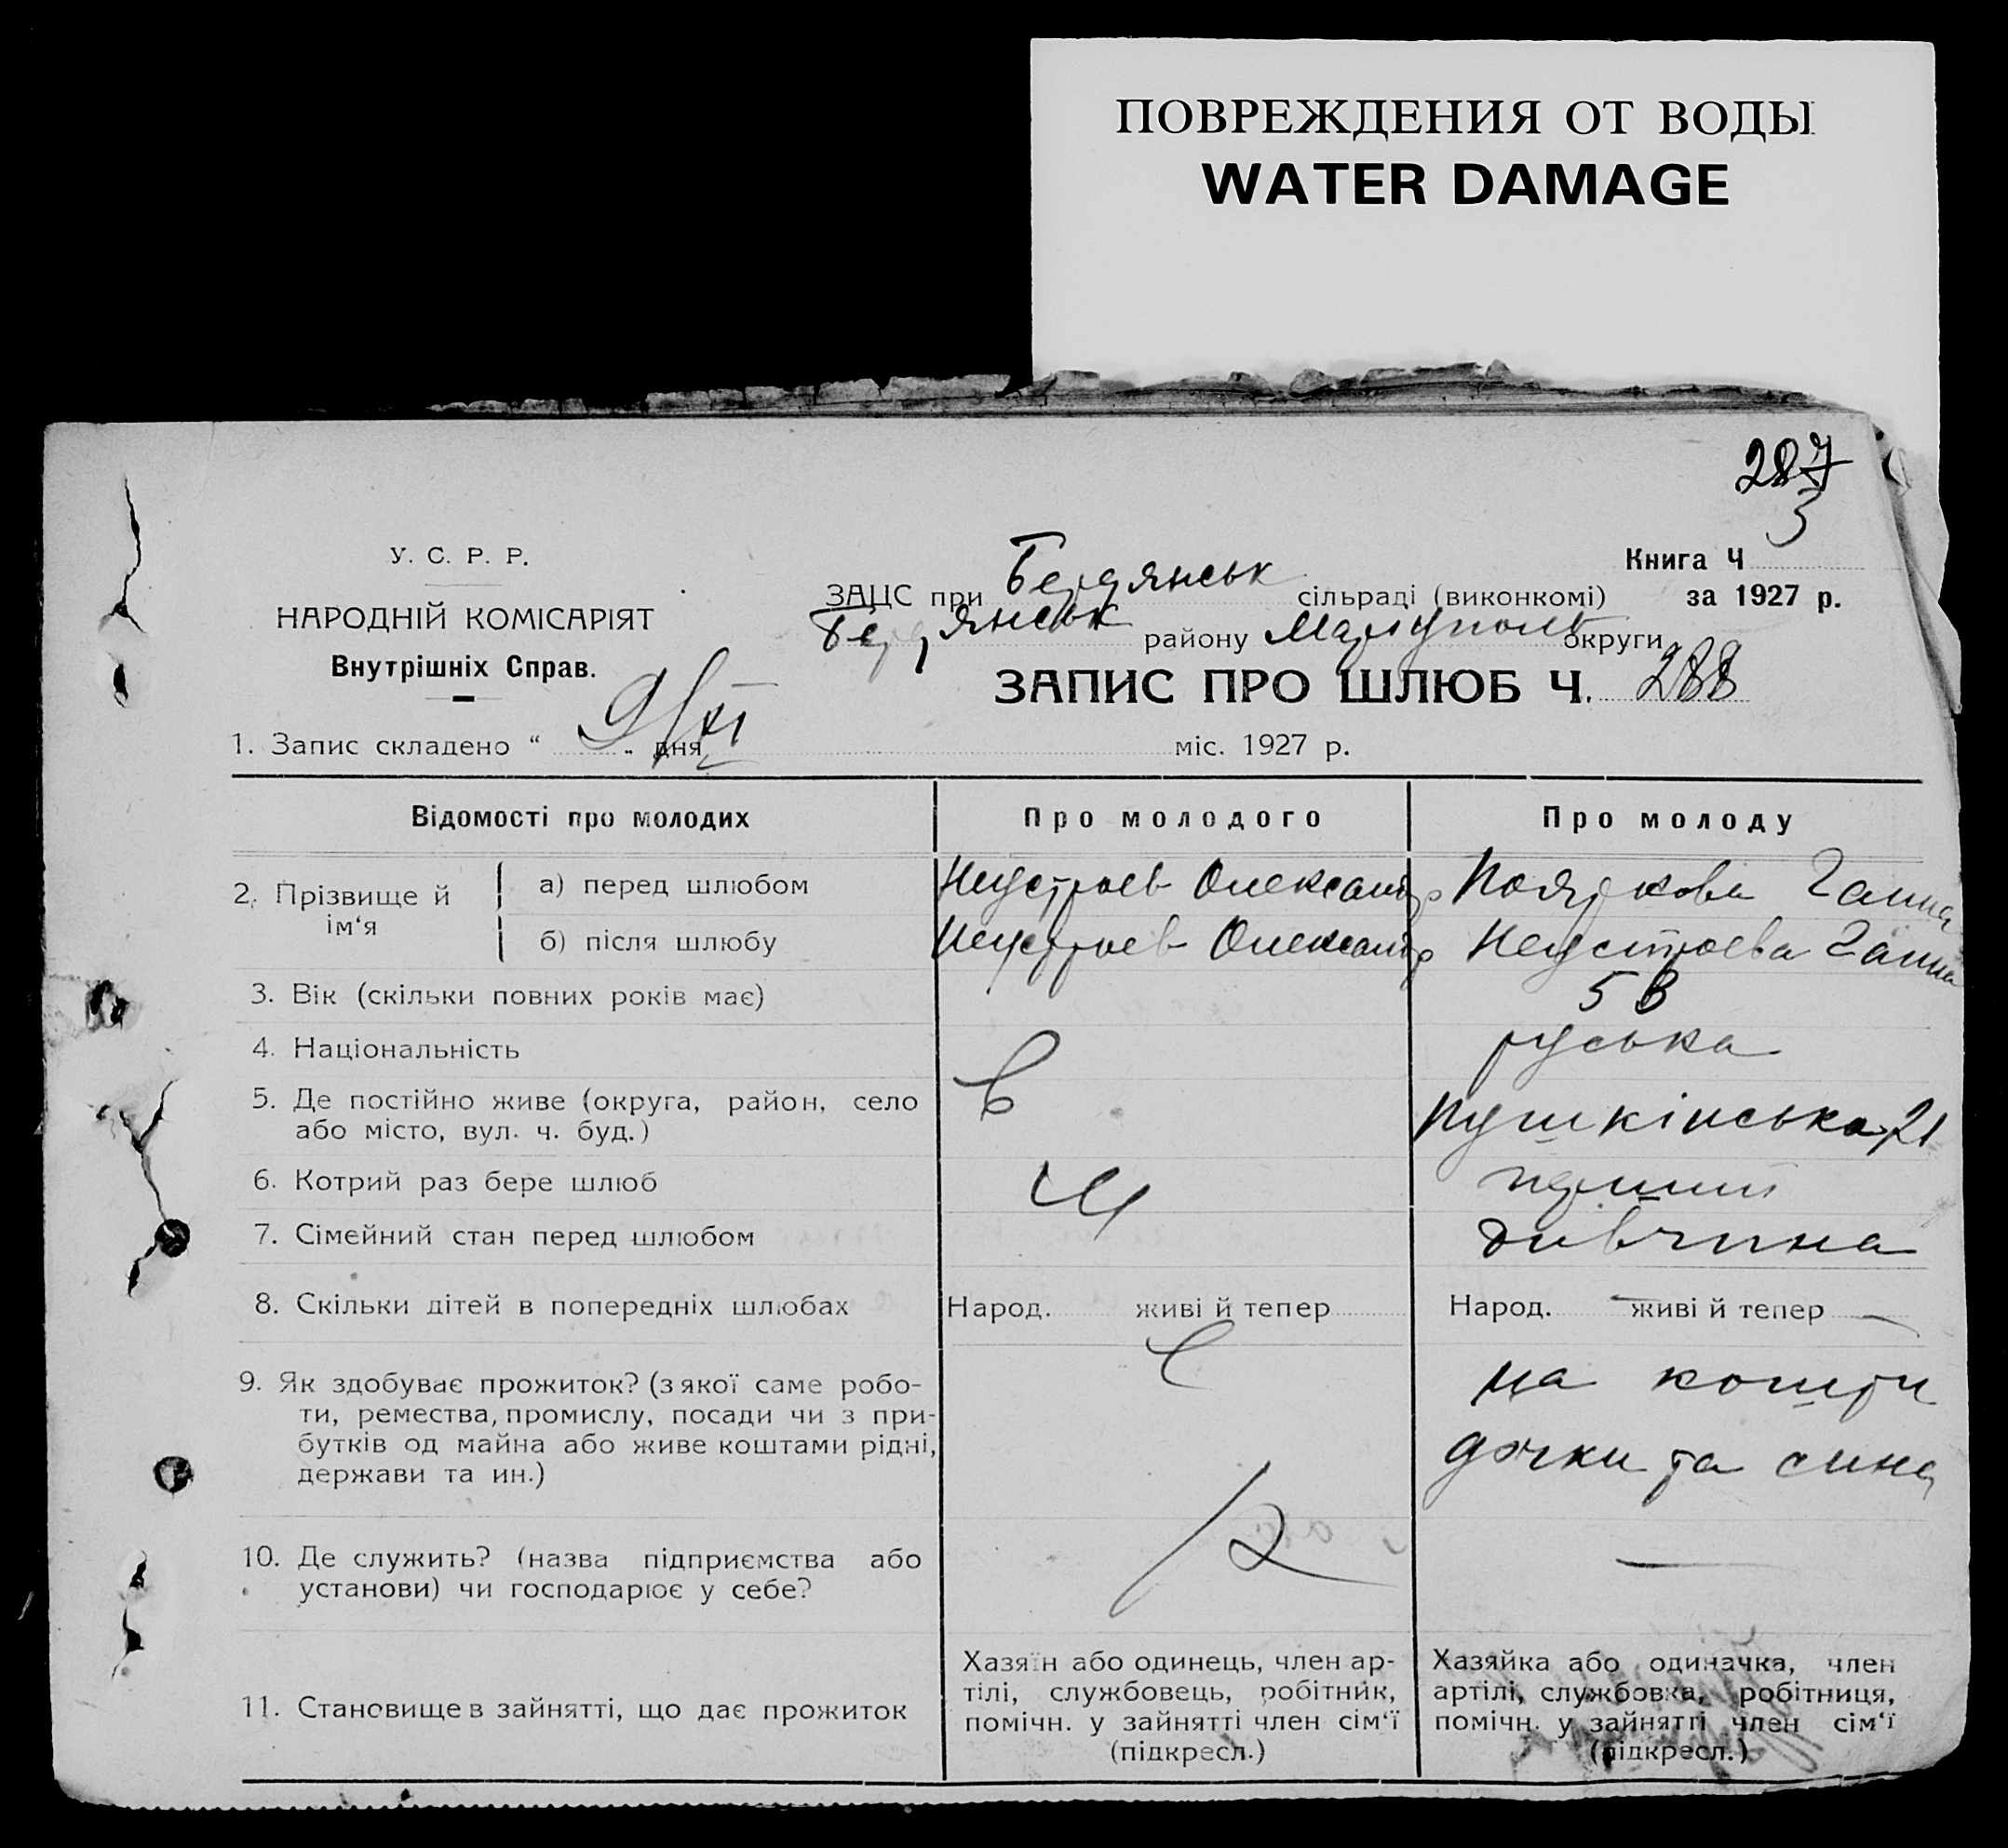 ПОВРЕЖДЕНИЯ ОТ ВОДЫ
WATER DAMAGE
287
3
У. С. Р. Р.
НАРОДНІЙ КОМІСАРІЯТ
Внутрішніх Справ.
Книга Ч
за 1927 р.
ЗАЦС при Бердянськ сільраді (виконкомі)
Бердянськ району Маріуполь округи
ЗАПИС ПРО ШЛЮБ Ч. 288
1. Запис складено “ 9/XI „ дня міс. 1927 р.
Відомості про молодих Про молодого Про молоду
2. Прізвище й ім‘я
а) перед шлюбом Неустроев Олександр Пояркова Ганна
б) після шлюбу Неустроев Олександр Неустроева Ганна
3. Вік (скільки повних років має) 58
4. Національність руська
5. Де постійно живе (округа, район, село
або місто, вул. ч. буд.) Пушкінська 21
6. Котрий раз бере шлюб перший
7. Сімейний стан перед шлюбом дивчина
8. Скільки дітей в попередніх шлюбах Народ. живі й тепер Народ. живі й тепер —
9. Як здобуває прожиток? (з якої саме робо-
ти, ремества, промислу, посади чи з при-
бутків од майна або живе коштами рідні,
держави та ин.)
на кошти
дочки та сина
10. Де служить? (назва підприємства або
установи) чи господарює у себе? —
11. Становище в зайнятті, що дає прожиток
Хазяїн або одинець, член ар-
тілі, службовець, робітник,
помічн. у зайнятті член сім‘ї
(підкресл.)
Хазяйка або одиначка, член
артілі, службовка, робітниця,
помічн. у зайнятті член сім‘ї
(підкресл.)